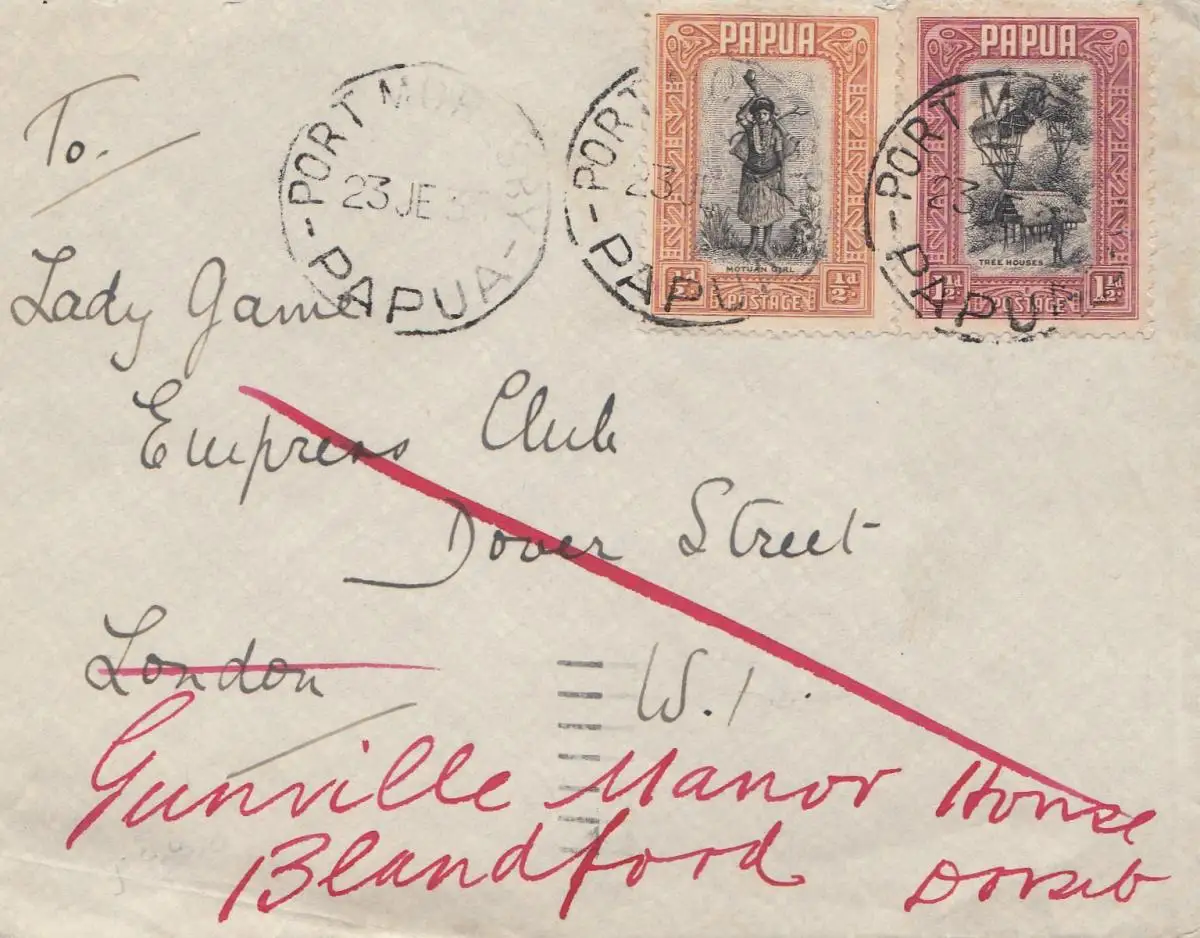 PAPUA
MOTUAN GIRL
½d ½d
POSTAGE
PAPUA
TREE HOUSES
1½d 1½d
POSTAGE
PORT MORESBY
23 JE 3
PAPUA
PORT
23
PAPU
PORT M
23
PAPUA
To.
Lady Game
Empress Club
Dover Street
London W.1
Gunville Manor House
Blandford Dorset